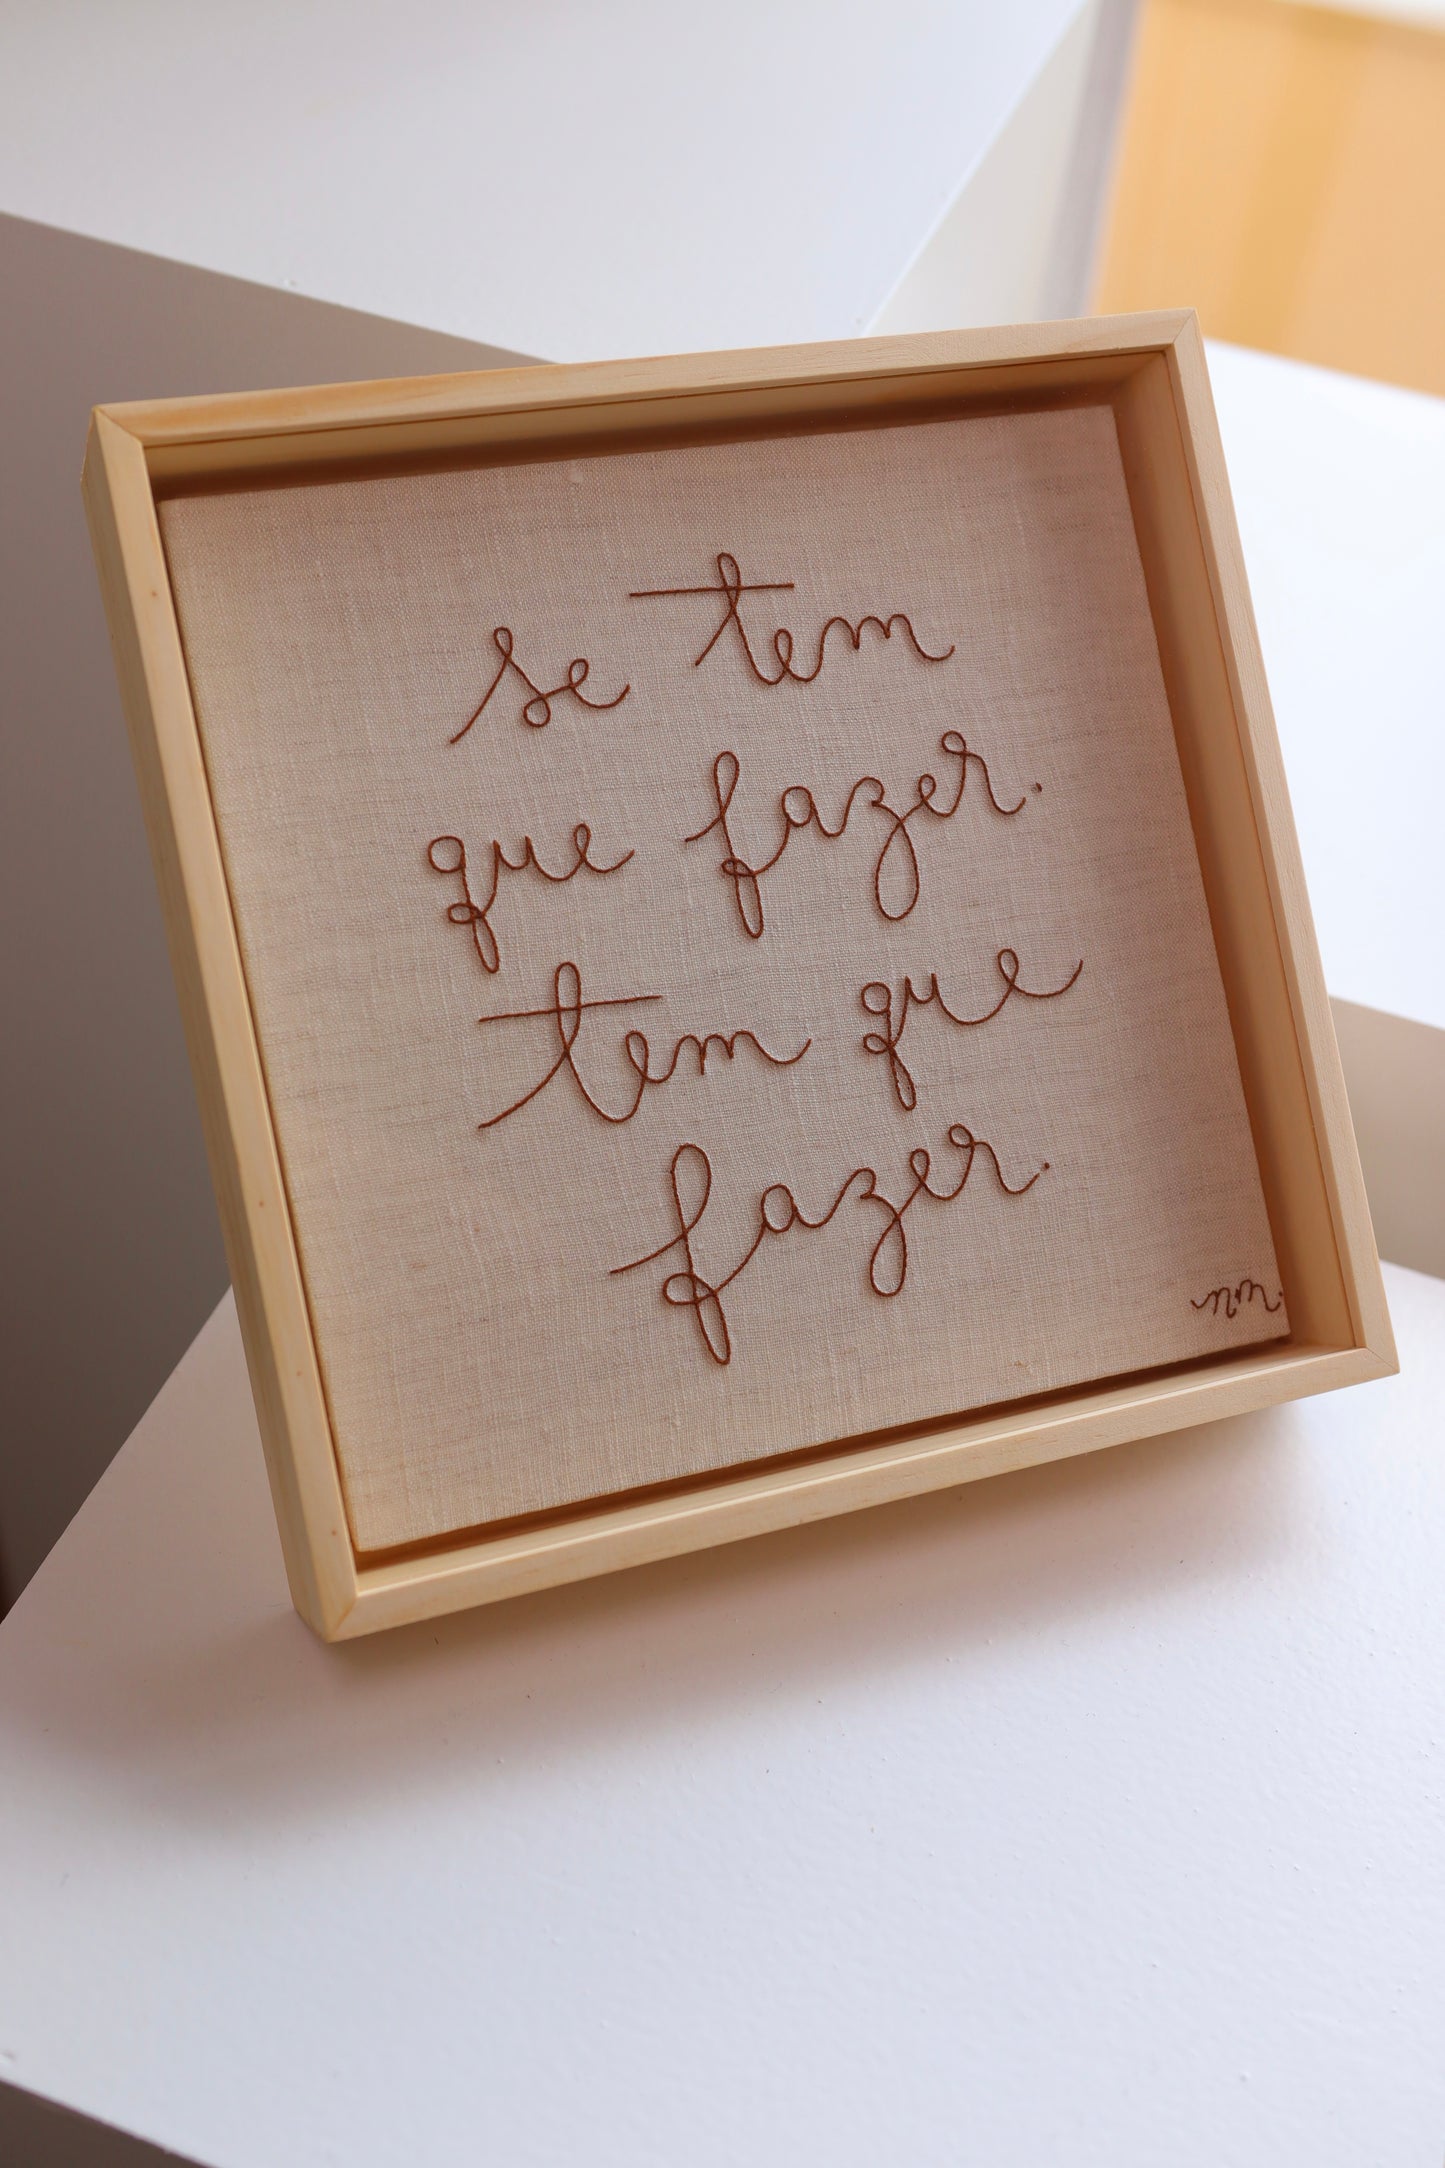 se tem
que fazer.
tem que
fazer.
n.m.